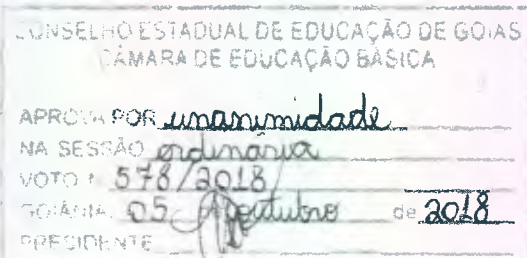 CONSELHO ESTADUAL DE EDUCAÇÃO DE GOIAS
CÂMARA DE EDUCAÇÃO BÁSICA
APROVA POR unanimidade
NA SESSÃO ordinária
VOTO N 578/2018
GOIÂNIA, 05 outubro de 2018
PRESIDENTE